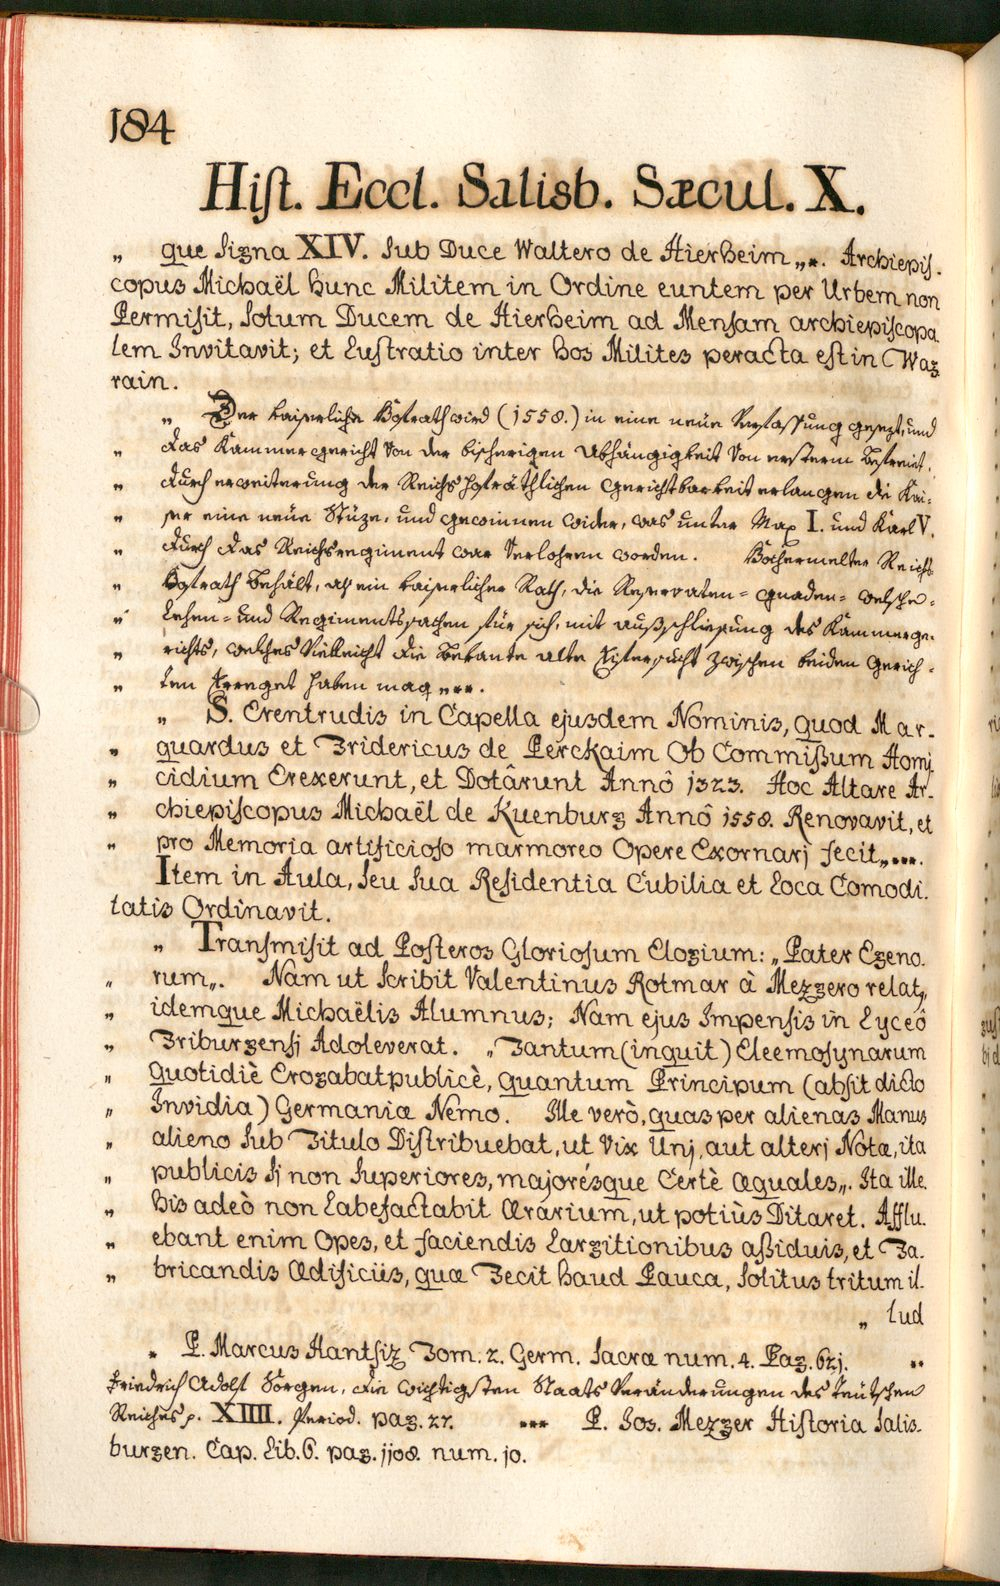 184
Hist. Eccl. Salisb. Sæcul. X.
„ que Signa XIV. Sub Duce Waltero de Hierheim „*. Archiepis-
copus Michaël hunc Militem in Ordine euntem per Urbem non
Permisit, Solum Ducem de Hierheim ad Mensam archiepiscopa
lem Invitavit; et Lustratio inter hos Milites peracta est in Wag
rain.
„ Der kaiserliche Hofrath wird (1558.) in eine neüe Verfassung gesezt, und
„ das Kammergericht von der bisherigen Abhängigkeit von ersterm befreiet.
„ durch erweiterung der Reichshofräthlichen gerichtbarkeit erlangen die Kai-
„ ser eine neüe Stüze, und gewinnen wider, was unter Max I. und Karl V.
„ durch das Reichsregiment war verlohren worden. Hochermelter Reichs
„ Hofrath behält, als ein kaiserlicher Rath, die Reservaten- gnaden- welsche-
„ Lehen- und Regimentssachen für sich, mit außschliesung des Kammerge-
„ richts, welches vielleicht die bekante alte Eifersucht zwischen beiden Gerich-
„ ten erreget haben mag „**.
„ S. Erentrudis in Capella ejusdem Nominis, quod Mar-
„ quardus et Fridericus de Perckaim Ob Commißum Homi
„ cidium Erexerunt, et Dotârunt Annô 1323. Hoc Altare Ar-
„ chiepiscopus Michaël de Kuenburg Annô 1558. Renovavit, et
„ pro Memoria artificioso marmoreo Opere Exornarj fecit „***.
Item in Aula, Seu Sua Residentia Cubilia et Loca Comodi.
tatis Ordinavit.
„ Transmisit ad Posteros Gloriosum Elogium: „ Pater Egeno.
„ rum „. Nam ut Scribit Valentinus Rotmar à Mezgero relatq,
„ idemque Michaëlis Alumnus; Nam ejus Impensis in Lyceô
„ Friburgensj Adoleverat. „ Tantum (inquit) Eleemosynarum
„ Quotidiè Erogabat publicè, quantum Principum (absit dicto
„ Invidia) Germaniæ Nemo. Ille verò, quas per alienas Manus
„ alieno Sub Titulo Distribuebat, ut Vix Unj, aut alterj Notæ, ita
„ publicis Sj non Superiores, majorésque Certè Æquales „. Ita ille.
„ his adeò non Labefactabit Ærarium, ut potiùs Ditaret. Afflu.
„ ebant enim Opes, et faciendis Largitionibus aßiduis, et Fa.
„ bricandis Ædificiis, quæ Fecit haud Pauca, Solitus tritum il.
„ lud
* P. Marcus Hantsiz Tom. 2. Germ. Sacræ num. 4. Pag. 621. **
Friedrich Adolf Sorgen, die wichtigsten Staats Veränderungen des teütschen
Reiches p. XIIII. Period. pag. 27. *** P. Jos. Mezger Historia Salis-
burgen. Cap. Lib. 6. pag. 1108. num. 10.